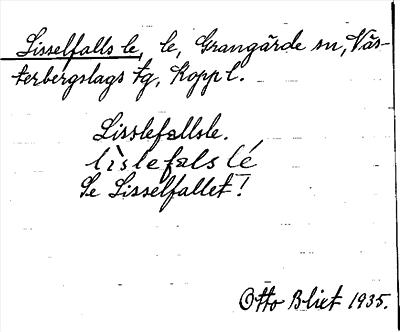 Lisselfalls le, le, Grangärde sn, Väs-
terbergslags tg, Koppl.
Lisslefallsle.
lìslefals lé
Se Lisselfallet!
Otto Blixt 1935.